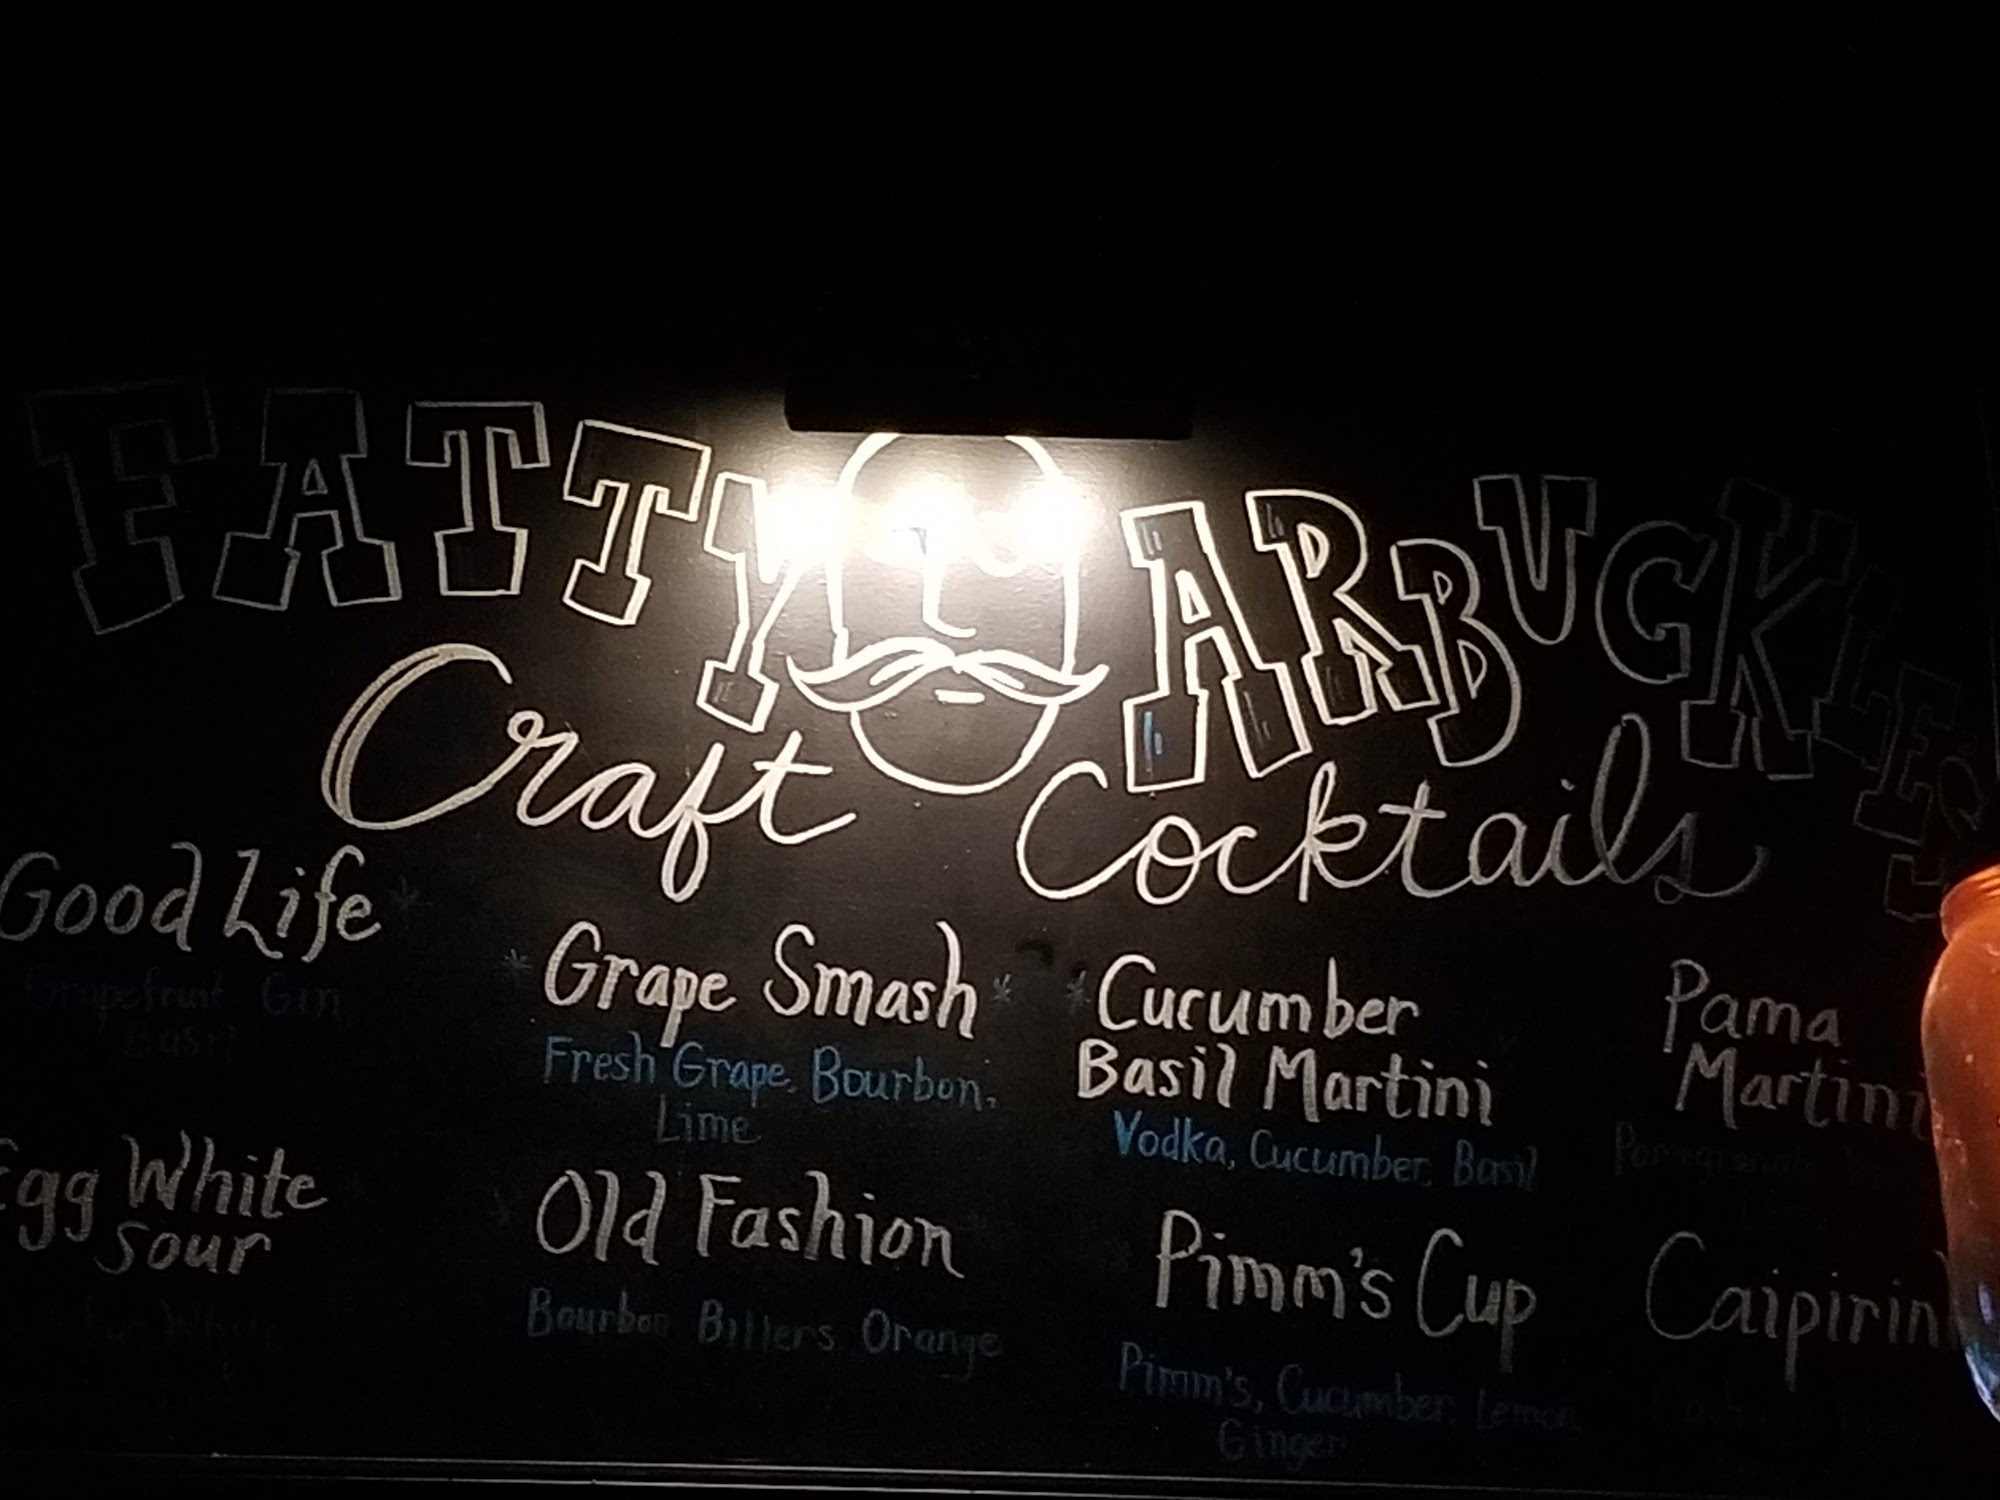 FATTY ARBUCKLES
Craft Cocktails
Good Life *
Grapefruit Gin
Basil
* Grape Smash *
Fresh Grape, Bourbon,
Lime
* Cucumber
Basil Martini
Vodka, Cucumber, Basil
Pama
Martini
Egg White
Sour
Old Fashion
Bourbon Bitters Orange
Pimm's Cup
Pimm's, Cucumber, Lemon,
Ginger
Caipirin